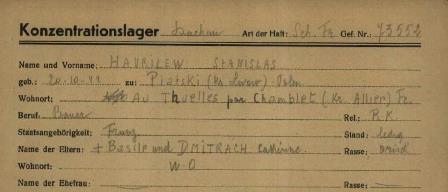 Konzentrationslager Dachau Art der Haft: Sch. Fr. Gef. Nr.: 73552
Name und Vorname: HAVRILEW STANISLAS
geb.: 20.10.22 zu: Piatski (Kr.
Wohnort: Av Thuelles par Chamblet (Kr. Allier) Fr.
Beruf: Bauer Rel.: R.K.
Staatsangehörigkeit: Franz. Stand: ledig
Name der Eltern: + Basile und DMITRACH Rasse: arisch
Wohnort: W.O
Name der Ehefrau: Rasse: